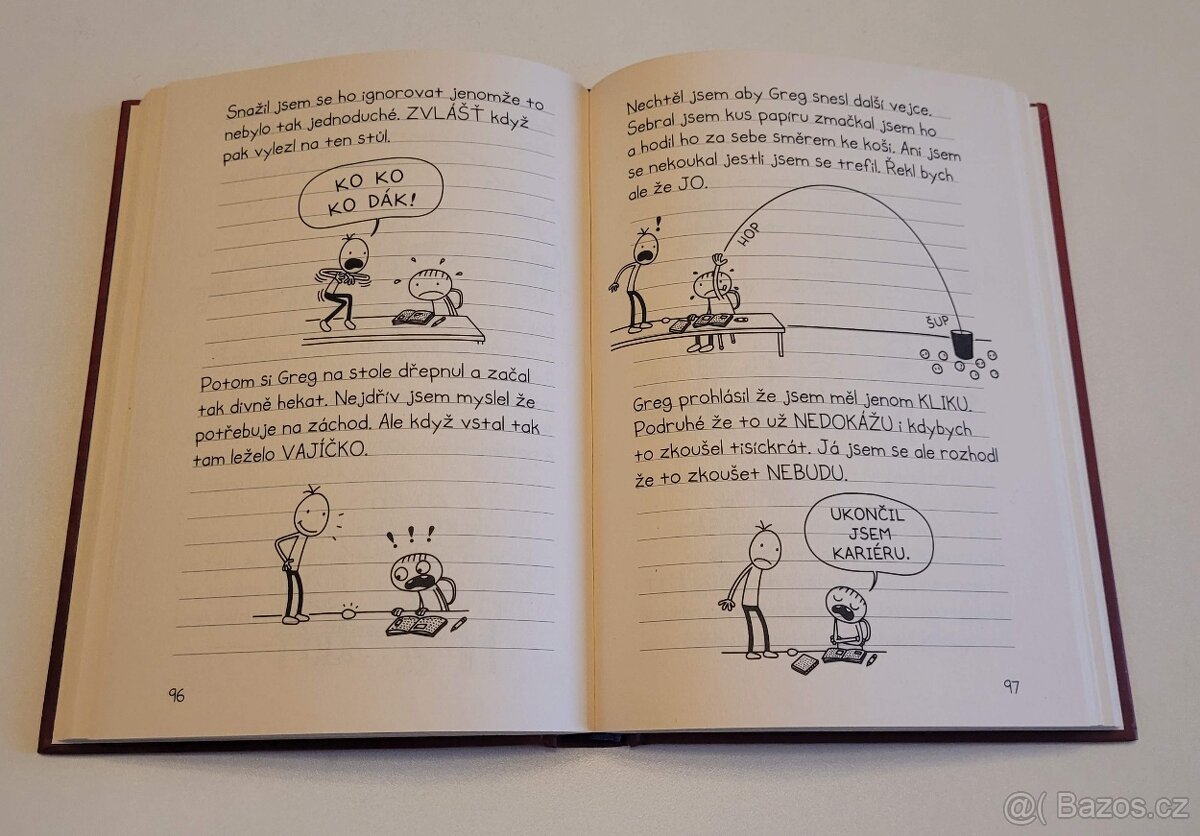 Snažil jsem se ho ignorovat jenomže to
nebylo tak jednoduché. ZVLÁŠŤ když
pak vylezl na ten stůl.
KO KO
KO DÁK!
Potom si Greg na stole dřepnul a začal
tak divně hekat. Nejdřív jsem myslel že
potřebuje na záchod. Ale když vstal tak
tam leželo VAJÍČKO.
! ! !
96
Nechtěl jsem aby Greg snesl další vejce.
Sebral jsem kus papíru zmačkal jsem ho
a hodil ho za sebe směrem ke koši. Ani jsem
se nekoukal jestli jsem se trefil. Řekl bych
ale že JO.
!
HOP
ŠUP
Greg prohlásil že jsem měl jenom KLIKU.
Podruhé že to už NEDOKÁŽU i kdybych
to zkoušel tisíckrát. Já jsem se ale rozhodl
že to zkoušet NEBUDU.
UKONČIL
JSEM
KARIÉRU.
97
@( Bazos.cz